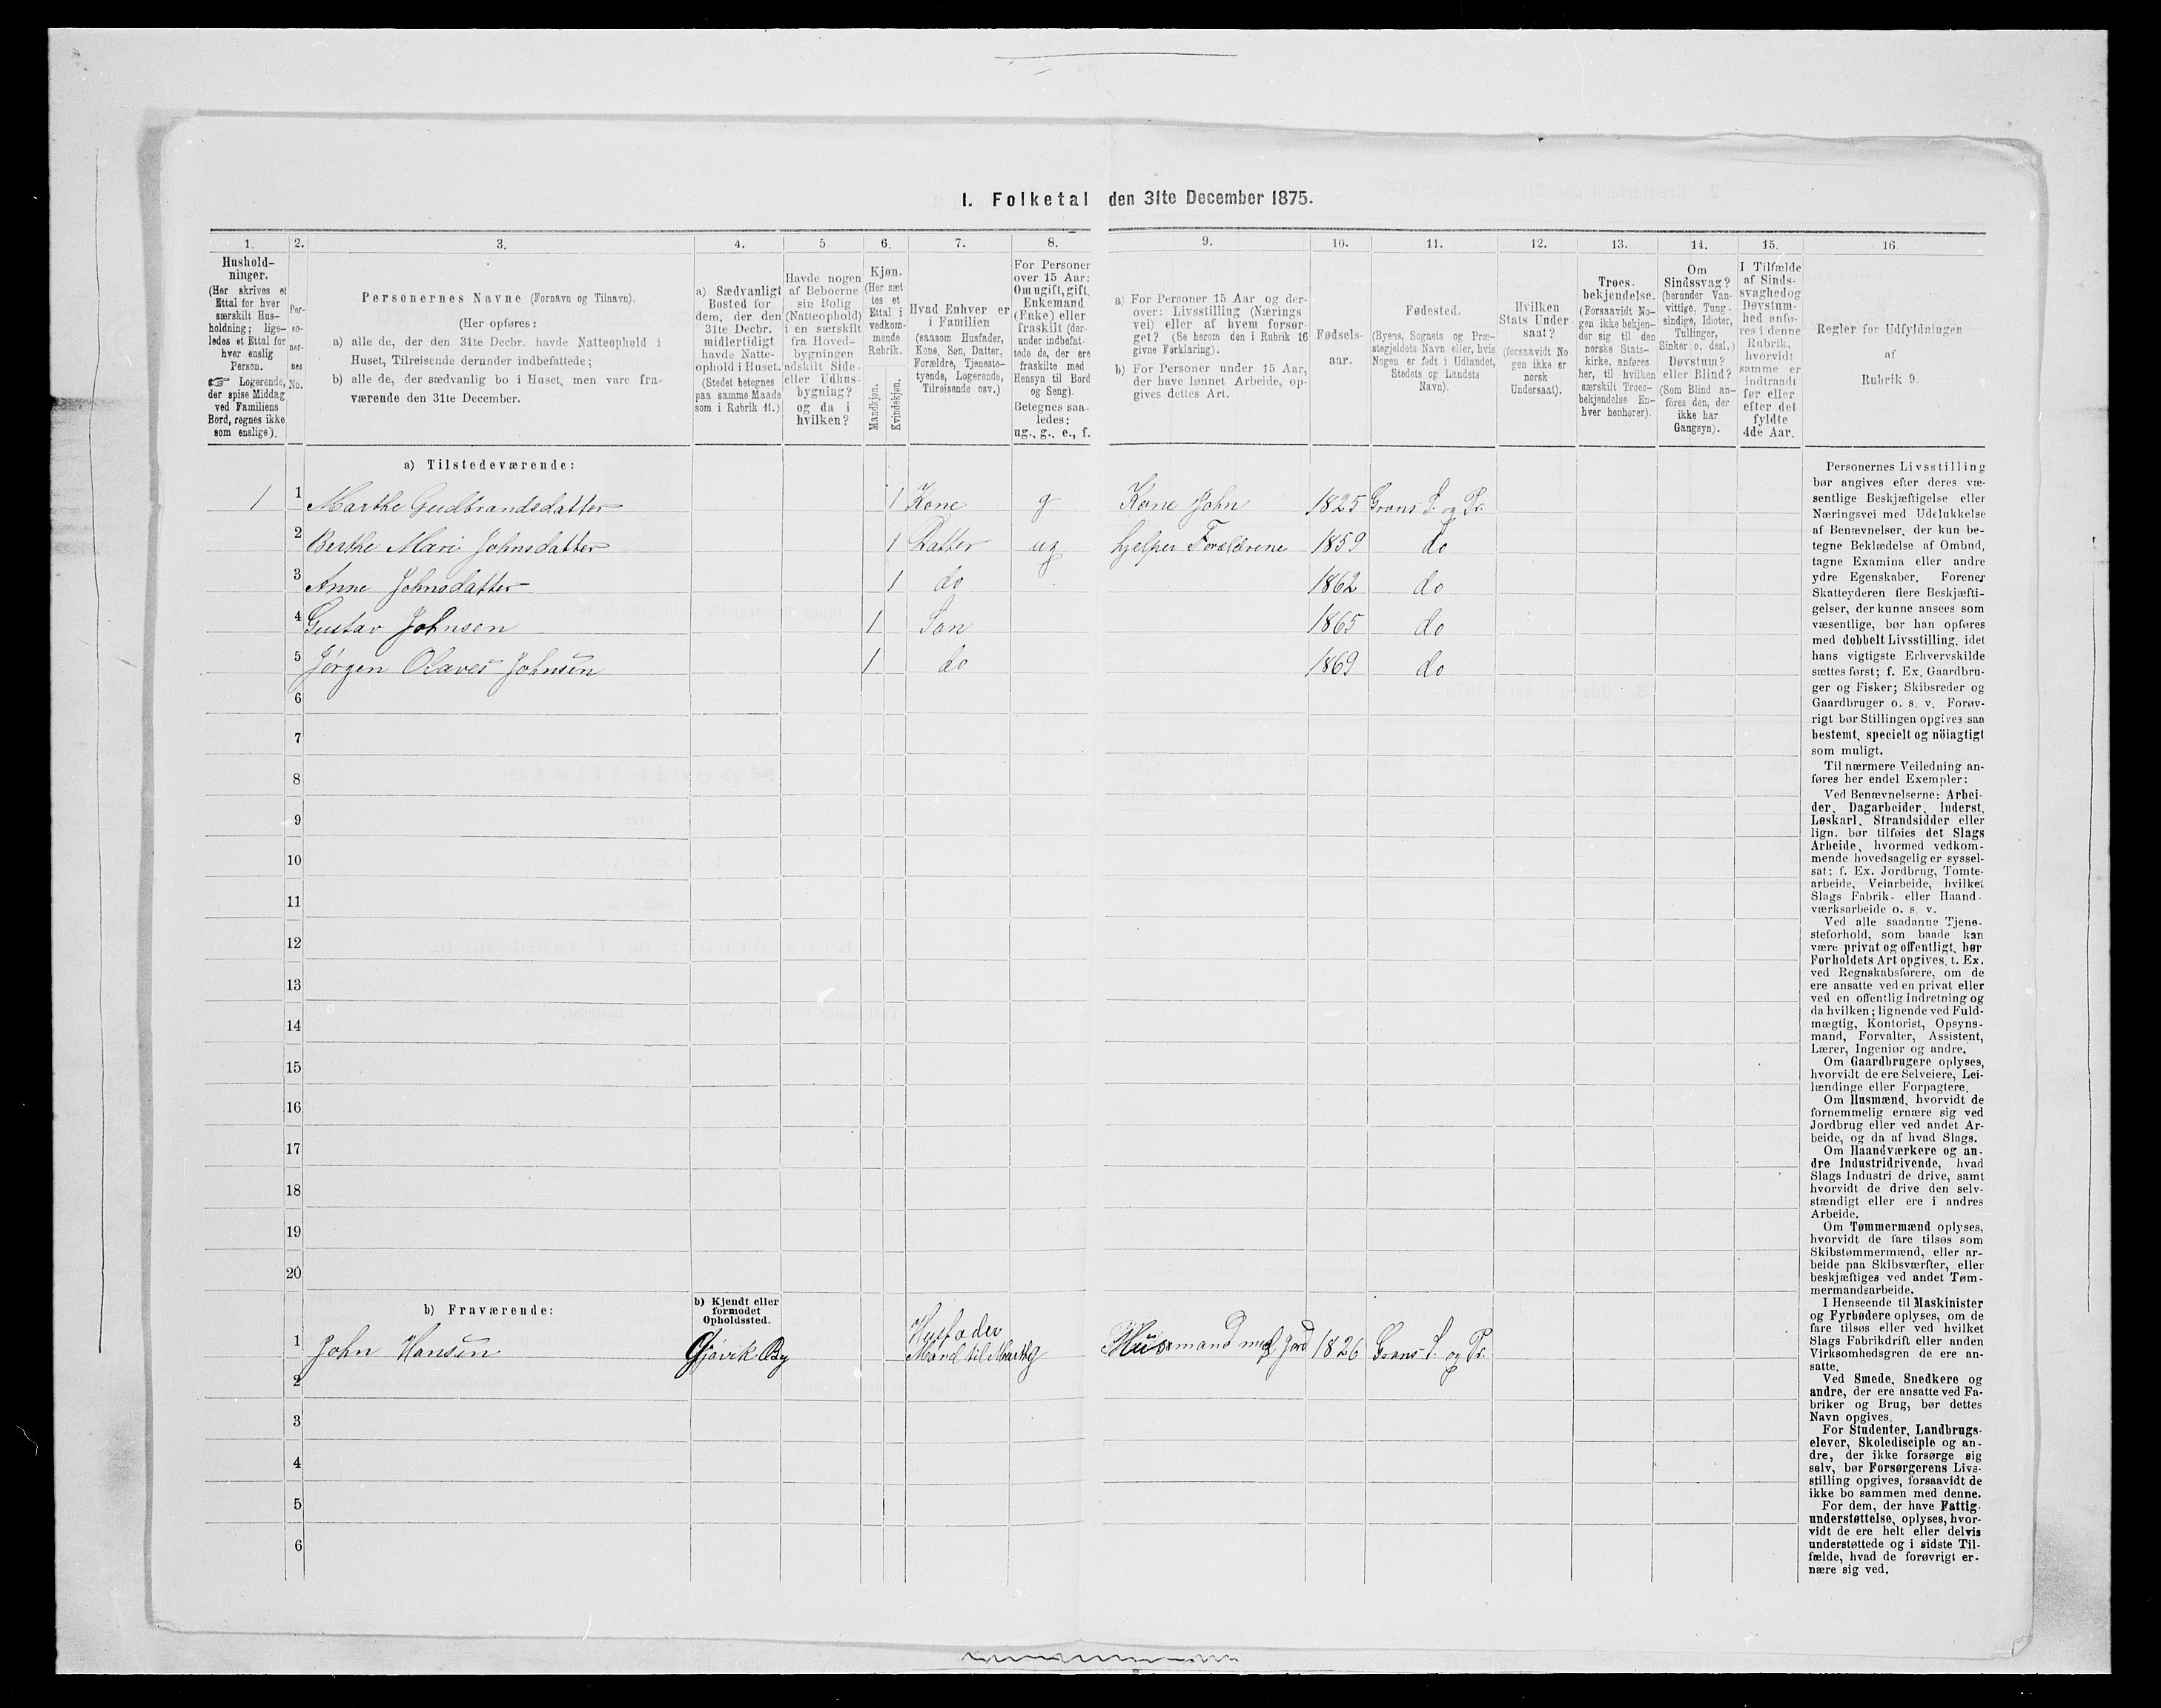 1. Folketal den 31te December 1875.
1. 2. 3. 4. 5. 6. 7. 8. 9. 10. 11. 12. 13. 14. 15. 16
Hushold-
ninger.
(Her skrives et
Ettal for hver
særskilt Hus-
holdning; lige-
ledes et Ettal for
hver enslig
Person.
☞ Logerende,
der spise Middag
ved Familiens
Bord, regnes ikke
som enslige).
Per-
so-
ner-
nes
No.
Personernes Navne (Fornavn og Tilnavn).
(Her opføres:
a) alle de, der den 31te Decbr. havde Natteophold i
Huset, Tilreisende derunder indbefattede;
b) alle de, der sædvanlig bo i Huset, men vare fra-
værende den 31te December.
a) Sædvanligt
Bosted for
dem, der den
31te Decbr.
midlertidigt
havde Natte-
ophold i Huset.
(Stedet betegnes
paa samme Maade
som i Rubrik 11.)
Havde nogen
af Beboerne
sin Bolig
(Natteophold)
i en særskilt
fra Hoved-
bygningen
adskilt Side-
eller Udhus-
bygning?
og da i
hvilken?
Kjøn.
(Her sæt
tes et
Ettal i
vedkom-
mende
Rubrik.
Mandkjøn.
Kvindekjøn.
Hvad Enhver er
i Familien
(saasom Husfader,
Kone, Søn, Datter,
Forældre, Tjeneste-
tyende, Logerende,
Tilreisende osv.)
For Personer
over 15 Aar:
Om ugift, gift,
Enkemand
(Enke) eller
fraskilt (der-
under indbefat-
tede de, der ere
fraskilte med
Hensyn til Bord
og Seng).
Betegnes saa-
ledes:
ug., g., e., f.
a) For Personer 15 Aar og der-
over: Livsstilling (Nærings
vei) eller af hvem forsør-
get? (Se herom den i Rubrik 16
givne Forklaring).
b) For Personer under 15 Aar,
der have lønnet Arbeide, op-
gives dettes Art.
Fødsels-
aar.
Fødested.
(Byens, Sognets og Præ-
stegjeldets Navn eller, hvis
Nogen er født i Udlandet,
Stedets og Landets
Navn).
Hvilken
Stats Under
saat?
(forsaavidt No
gen ikke er
norsk
Undersaat).
Troes-
bekjendelse.
(Forsaavidt No-
gen ikke bekjen-
der sig til den
norske Stats-
kirke, anføres
her, til hvilken
særskilt Troes-
bekjendelse En-
hver henhører).
Om
Sindssvag?
(herunder Van-
vittige, Tung-
sindige, Idioter,
Tullinger,
Sinker o. desl.)
Døvstum?
eller Blind?
(Som Blind an-
føres den, der
ikke har
Gangsyn).
I Tilfælde
af Sinds-
svaghed og
Døvstum-
hed anfø-
res i denne
Rubrik,
hvorvidt
samme er
indtraadt
før eller
efter det
fyldte
4de Aar.
Regler for Udfyldningen
af
Rubrik 9.
a) Tilstedeværende:
1 1 Marthe Gudbrandsdatter 1 Kone g Kone John 1825 Grans S. og Pr.
2 Berthe Mari Johnsdatter 1 Datter ug hjelper Forældrene 1859 do
3 Anne Johnsdatter 1 do 1862 do
4 Gustav Johnsen 1 Søn 1865 do
5 Jørgen Olaves Johnsen 1 do 1869 do
6
7
8
9
10
11
12
13
14
15
16
17
18
19
20
b) Fraværende:
b) Kjendt eller
formodet
Opholdssted.
Husfader
1 John Hansen Gjøvik By Mand til Marthe Husmand med Jord 1826 Grans S. og Pr.
2
3
4
5
6
Personernes Livsstilling
bør angives efter deres væ-
sentlige Beskjæftigelse eller
Næringsvei med Udelukkelse
af Benævnelser, der kun be-
tegne Beklædelse af Ombud,
tagne Examina eller andre
ydre Egenskaber. Forener
Skatteyderen flere Beskjæfti-
gelser, der kunne ansees som
væsentlige, bør han opføres
med dobbelt Livsstilling, idet
hans vigtigste Erhvervskilde
sættes først; f. Ex. Gaardbru-
ger og Fisker; Skibsreder og
Gaardbruger o. s. v. Forøv-
rigt bør Stillingen opgives saa
bestemt, specielt og nöiagtigt
som muligt.
Til nærmere Veiledning an-
føres her endel Exempler:
Ved Benævnelserne: Arbei-
der, Dagarbeider, Inderst,
Løskarl, Strandsidder eller
lign. bør tilføies det Slags
Arbeide, hvormed vedkom-
mende hovedsagelig er syssel-
sat; f. Ex. Jordbrug, Tomte-
arbeide, Veiarbeide, hvilket
Slags Fabrik- eller Haand-
værksarbeide o. s. v.
Ved alle saadanne Tjene-
steforhold, som baade kan
være privat og offentligt, bør
Forholdets Art opgives, t. Ex.
ved Regnskabsførere, om de
ere ansatte ved en privat eller
ved en offentlig Indretning og
da hvilken; lignende ved Fuld-
mægtig, Kontorist, Opsyns-
mand, Forvalter, Assistent,
Lærer, Ingeniør og andre.
Om Gaardbrugere oplyses,
hvorvidt de ere Selveiere, Lei-
lændinge eller Forpagtere.
Om Husmænd, hvorvidt de
fornemmelig ernære sig ved
Jordbrug eller ved andet Ar-
beide, og da af hvad Slags.
Om Haandværkere og an-
dre Industridrivende, hvad
Slags Industri de drive, samt
hvorvidt de drive den selv-
stændigt eller ere i andres
Arbeide.
Om Tømmermænd oplyses,
hvorvidt de fare tilsøs som
Skibstømmermænd, eller ar-
beide paa Skibsværfter, eller
beskjæftiges ved andet Tøm-
mermandsarbeide.
I Henseende til Maskinister
og Fyrbødere oplyses, om de
fare tilsøs eller ved hvilket
Slags Fabrikdrift eller anden
Virksomhedsgren de ere an-
satte.
Ved Smede, Snedkere og
andre, der ere ansatte ved Fa-
briker og Brug, bør dettes
Navn opgives.
For Studenter, Landbrugs-
elever, Skoledisciple og an-
dre, der ikke forsørge sig
selv, bør Forsørgerens Livs-
stilling opgives, forsaavidt de
ikke bo sammen med denne.
For dem, der have Fattig-
understøttelse, oplyses, hvor-
vidt de ere helt eller delvis
understøttede og i sidste Til-
fælde, hvad de forøvrigt er-
nære sig ved.